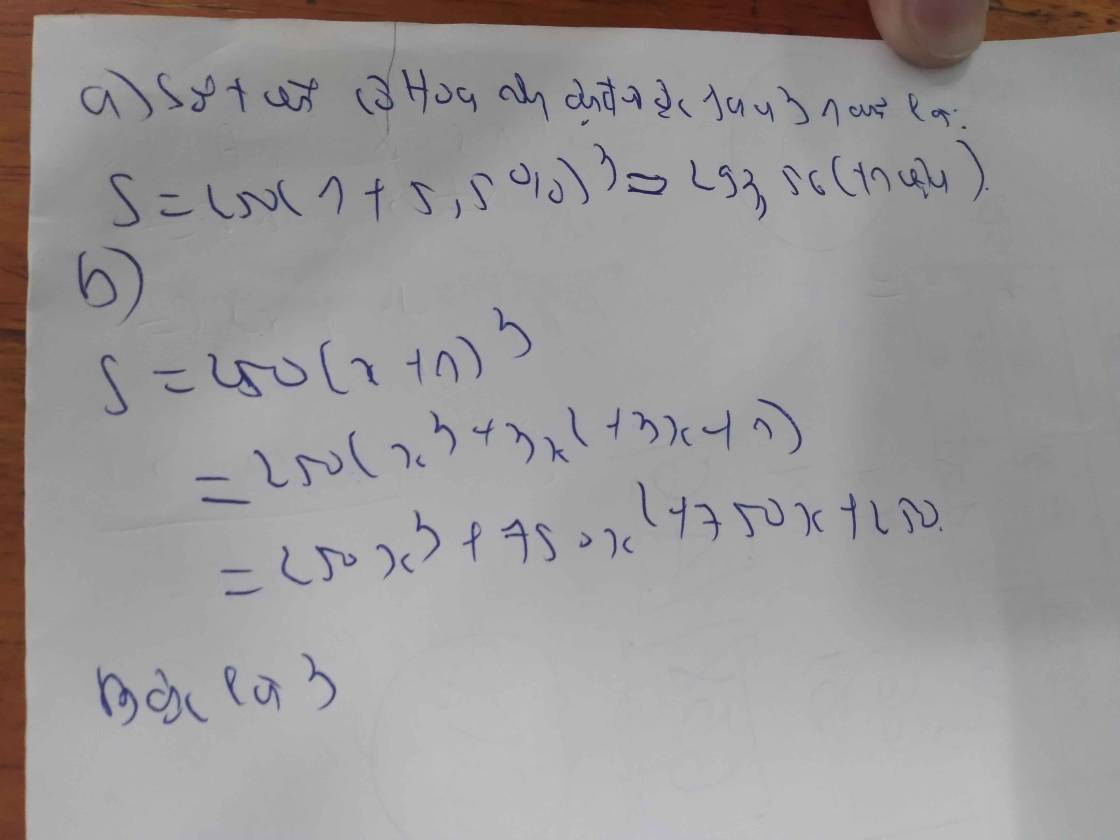 a) Số tiền cô Hoa nhận được sau 3 năm là:
S = 250(1 + 5,5%)³ = 293,56 (triệu).
b)
S = 250(x + 1)³
= 250(x³ + 3x² + 3x + 1)
= 250x³ + 750x² + 750x + 250.
Bậc là 3